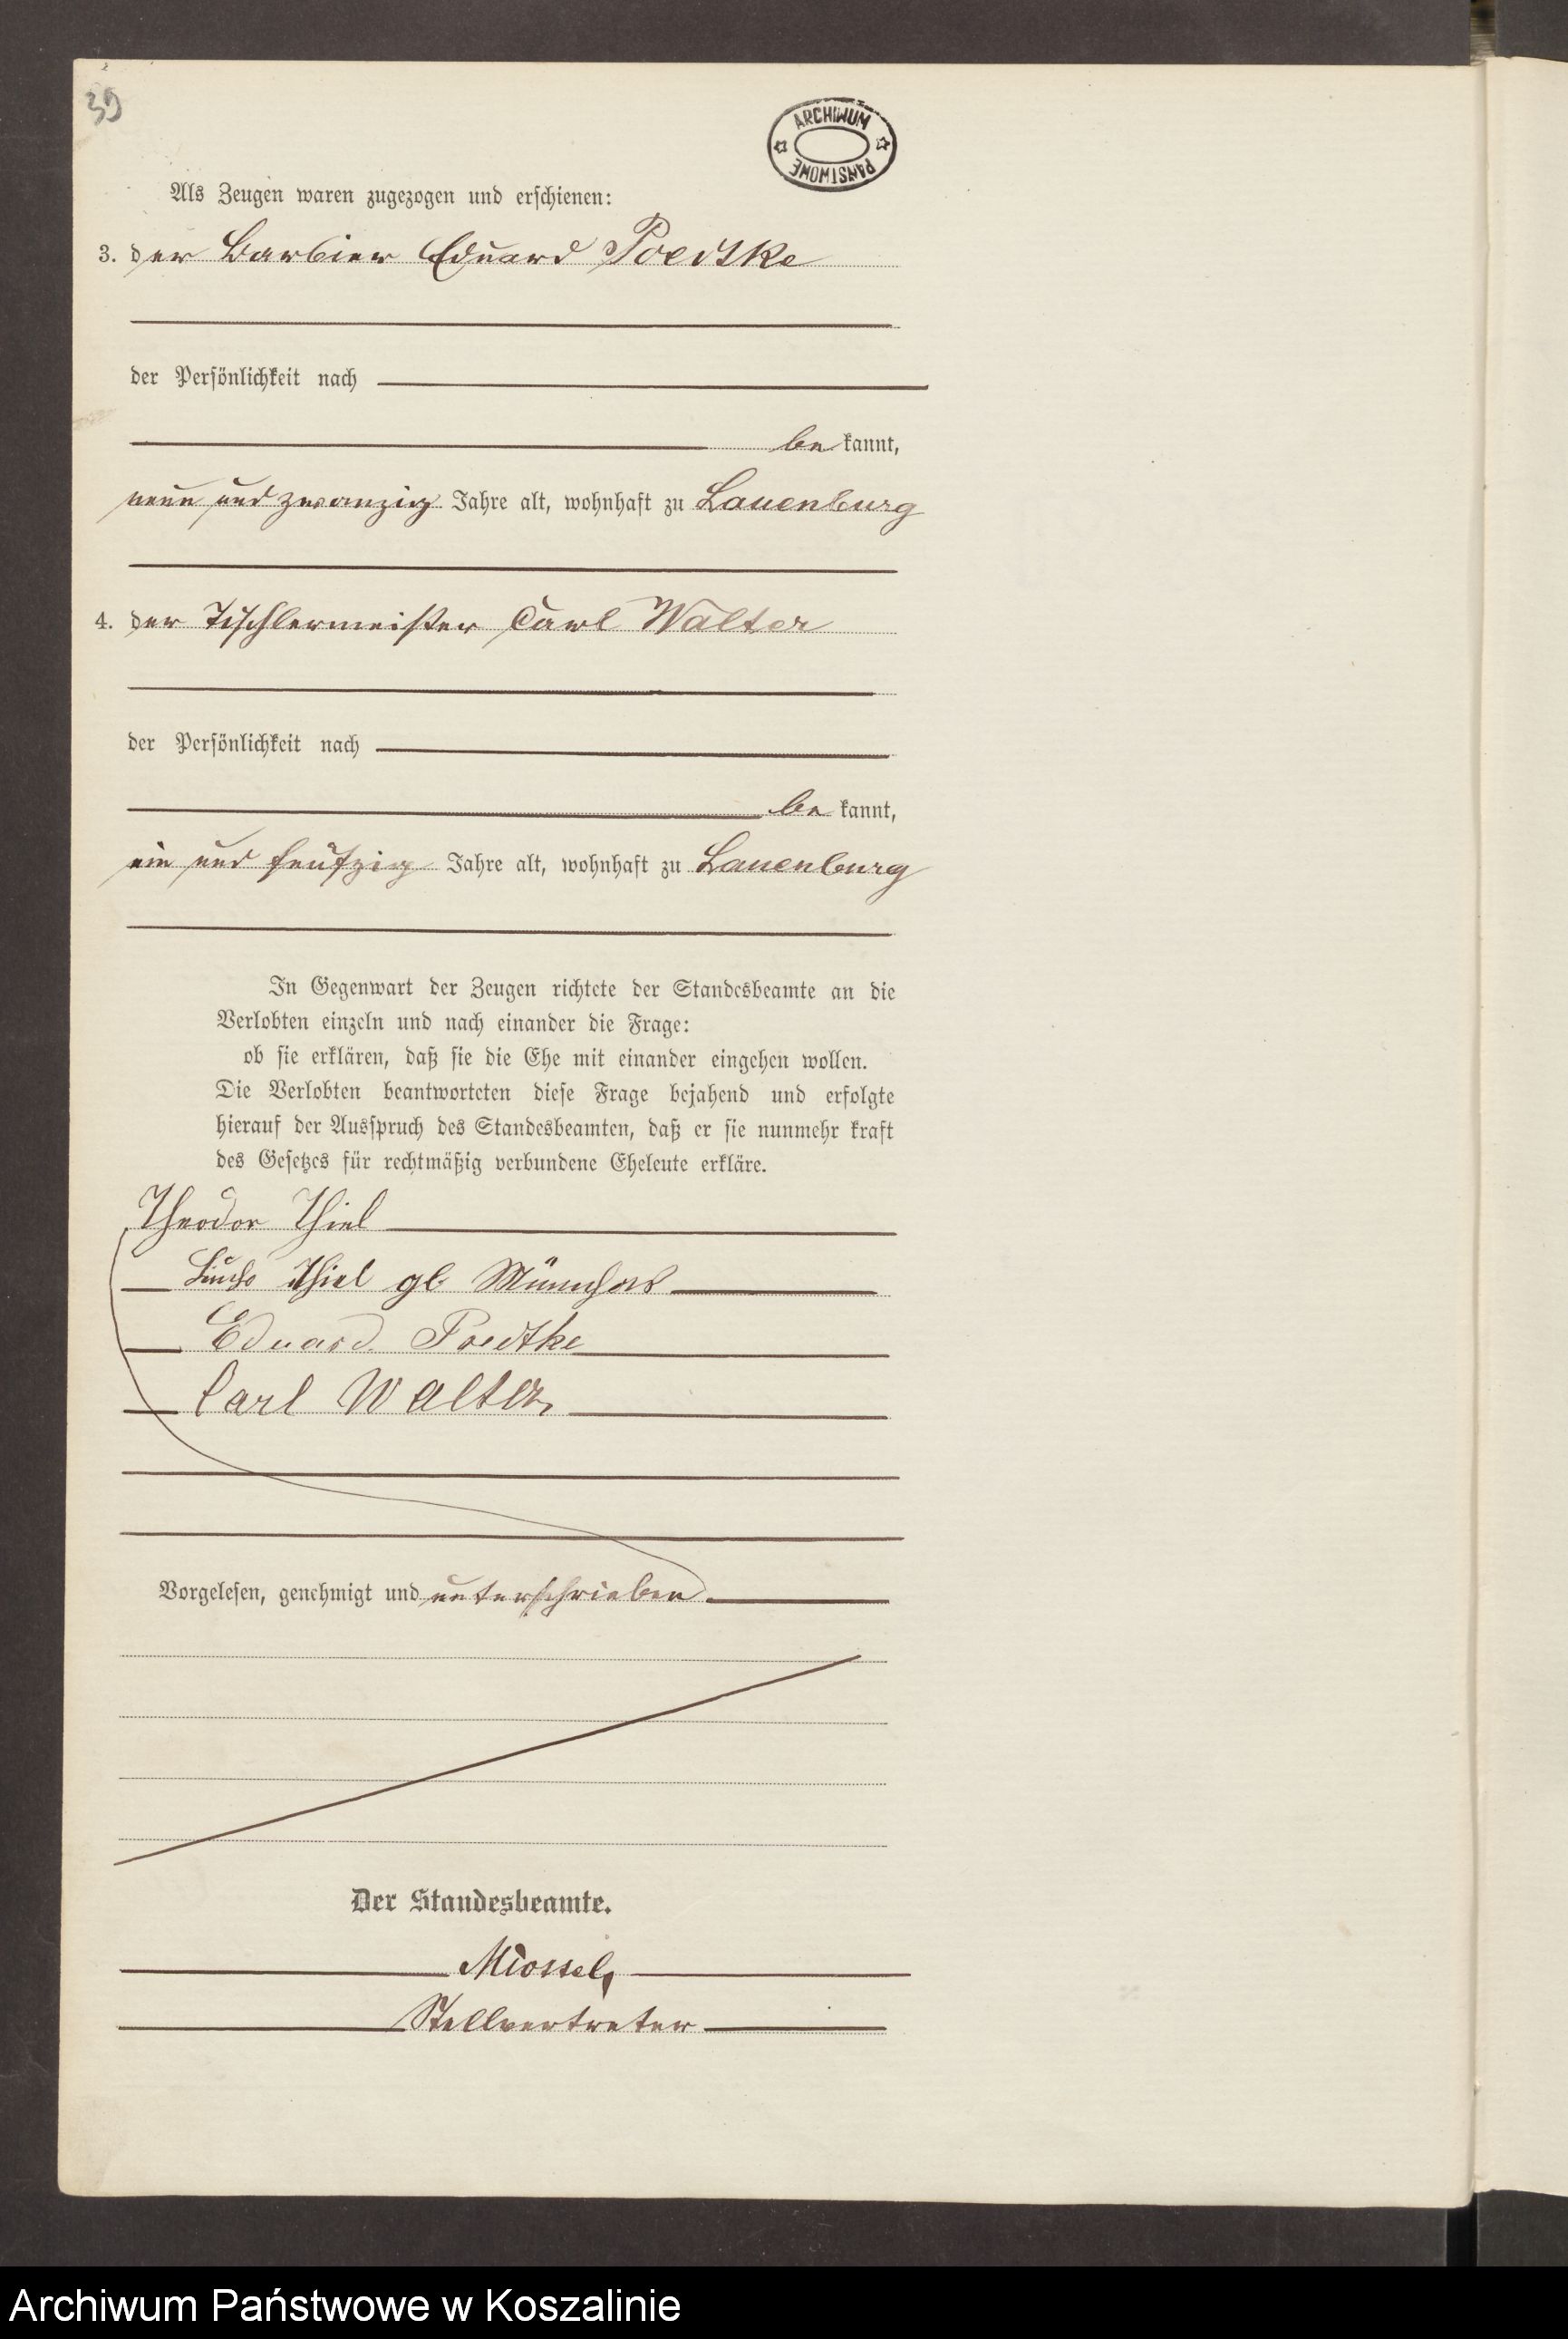 39
ARCHIWUM
PAŃSTWOWE
Als Zeugen waren zugezogen und erschienen:
3. der Barbier Eduard Poedtke
der Persönlichkeit nach
be kannt,
neun und zwanzig Jahre alt, wohnhaft zu Lauenburg
4. der Tischlermeister Carl Walter
der Persönlichkeit nach
be kannt,
ein und fünfzig Jahre alt, wohnhaft zu Lauenburg
In Gegenwart der Zeugen richtete der Standesbeamte an die
Verlobten einzeln und nach einander die Frage:
ob sie erklären, daß sie die Ehe mit einander eingehen wollen.
Die Verlobten beantworteten diese Frage bejahend und erfolgte
hierauf der Ausspruch des Standesbeamten, daß er sie nunmehr kraft
des Gesetzes für rechtmäßig verbundene Eheleute erkläre.
Theodor Thiel
Thiel gb.
Eduard Poedtke
Carl Walter
Vorgelesen, genehmigt und unterschrieben
Der Standesbeamte.
Stellvertreter
Archiwum Państwowe w Koszalinie